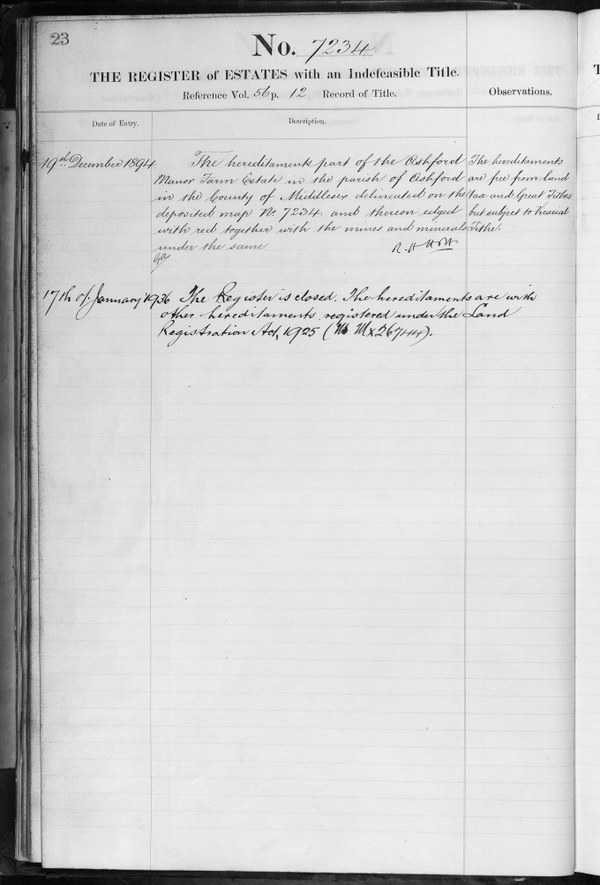 23
No. 7234
THE REGISTER of ESTATES with an Indefeasible Title.
Reference Vol. 56 p. 12 Record of Title.
Observations.
Date of Entry.
Description.
19th December 1894
The hereditaments part of the Ashford
Manor Farm Estate in the parish of Ashford
in the County of Middlesex delineated on the
deposited map No. 7234 and thereon edged
with red together with the mines and minerals
under the same.
The hereditaments
are free from land
tax and Great Tithes
but subject to Vicarial
Tithe.
17th of January 1936
The Register is closed. The hereditaments are with
other hereditaments registered under the Land
Registration Act, 1925 (No Mx26744).